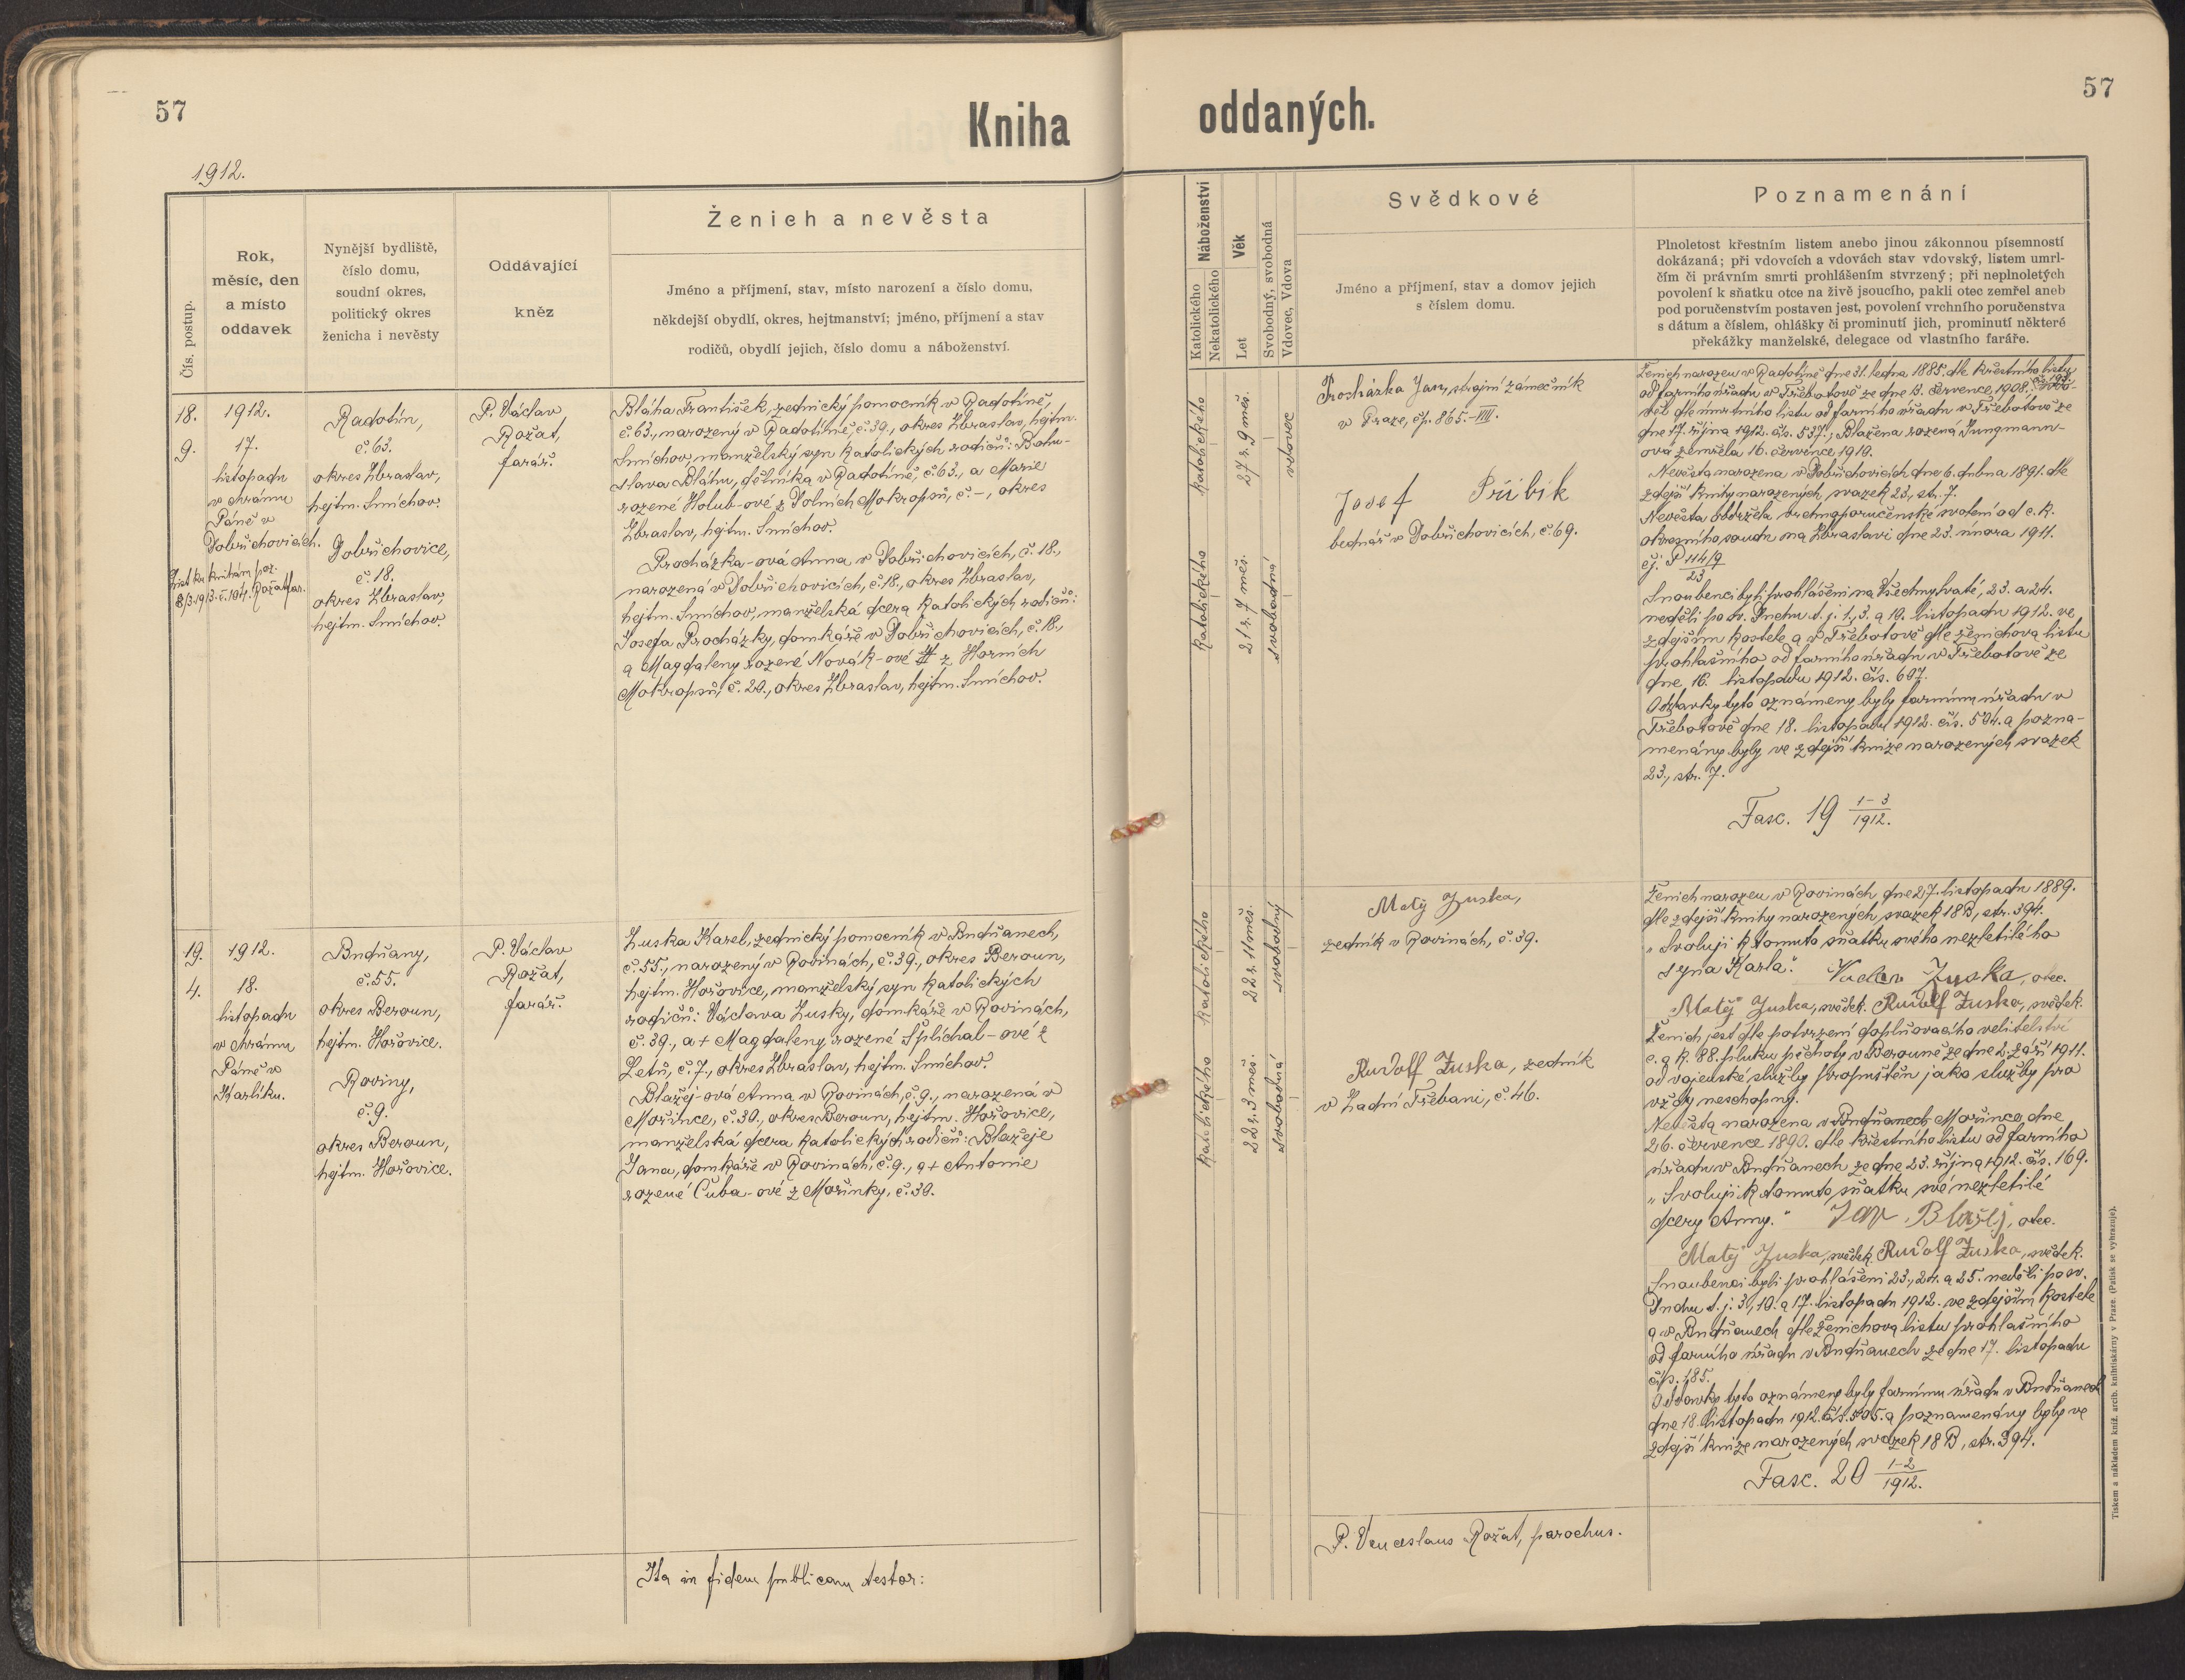 57
Kniha
1912.
Čís. postup.
Rok,
měsíc, den
a místo
oddavek
Nynější bydliště,
číslo domu,
soudní okres,
politický okres
ženicha i nevěsty
Oddávající
kněz
Ženich a nevěsta
Jméno a příjmení, stav, místo narození a číslo domu,
někdejší obydlí, okres, hejtmanství; jméno, příjmení a stav
rodičů, obydlí jejich, číslo domu a náboženství.
18.
9.
1912.
17.
listopadu
v chrámu
Páně v
Dobřichovicích.
List ku knihám poz.
8/3 1913. č. 104. Rožat far.
Radotín,
č. 63.
okres Zbraslav,
hejtm. Smíchov.
Dobřichovice,
č. 18.
okres Zbraslav,
hejtm. Smíchov.
P. Václav
Rožat,
farář.
Bláha František, zednický pomocník v Radotíně,
č. 63., narozený v Radotíně, č. 39., okres Zbraslav, hejtm.
Smíchov, manželský syn katolických rodičů: Bohu-
slava Bláhy, dělníka v Radotíně, č. 63., a Marie
rozené Holub-ové z Dolních Mokropsů, č. -, okres
Zbraslav, hejtm. Smíchov.
Procházka-ová Anna v Dobřichovicích, č. 18.,
narozená v Dobřichovicích, č. 18., okres Zbraslav,
hejtm. Smíchov, manželská dcera katolických rodičů:
Josefa Procházky, domkáře v Dobřichovicích, č. 18.,
a Magdaleny rozené Novák-ové z Horních
Mokropsů, č. 20., okres Zbraslav, hejtm. Smíchov.
19.
4.
1912.
18.
listopadu
v chrámu
Páně v
Karlíku.
Bubňany,
č. 55.
okres Beroun,
hejtm. Hořovice.
Roviny,
č. 9.
okres Beroun,
hejtm. Hořovice.
P. Václav
Rožat,
farář.
Zuska Karel, zednický pomocník v Bubňanech,
č. 55., narozený v Rovinách, č. 39., okres Beroun,
hejtm. Hořovice, manželský syn katolických
rodičů: Václava Zusky, domkáře v Rovinách,
č. 39., a + Magdaleny rozené Šplíchal-ové z
Letů, č. 7., okres Zbraslav, hejtm. Smíchov.
Blažej-ová Anna v Rovinách, č. 9., narozená v
Mořince, č. 30., okres Beroun, hejtm. Hořovice,
manželská dcera katolických rodičů: Blažeje
Jana, domkáře v Rovinách, č. 9., a + Antonie
rozené Čuba-ové z Mořinky, č. 30.
Ita in fidem publicam testor:
57
oddaných.
Náboženství
Katolického
Nekatolického
Věk
Let
Svobodný, svobodná
Vdovec, Vdova
Svědkové
Jméno a příjmení, stav a domov jejich
s číslem domu.
Poznamenání
Plnoletost křestním listem anebo jinou zákonnou písemností
dokázaná; při vdovcích a vdovách stav vdovský, listem umrl-
čím či právním smrti prohlášením stvrzený; při neplnoletých
povolení k sňatku otce na živě jsoucího, pakli otec zemřel aneb
pod poručenstvím postaven jest, povolení vrchního poručenstva
s dátum a číslem, ohlášky či prominutí jich, prominutí některé
překážky manželské, delegace od vlastního faráře.
Katolického
27 r. 9 měs.
vdovec
Katolického
21 r. 7 měs.
svobodná
Procházka Jan, strojní zámečník
v Praze, čp. 865.-VIII.
Josef Přibík
bednář v Dobřichovicích, č. 69.
Ženich narozen v Radotíně dne 31. ledna 1885. dle křestního listu
od farního úřadu v Třebotově ze dne 3. července 1908.
dne 17. října 1912. čís. 537., Blažena rozená Jungmann-
ová zemřela 16. července 1910.
Nevěsta narozena v Dobřichovicích dne 6. dubna 1891. dle
zdejší knihy narozených, svazek 23., str. 7.
Nevěsta obdržela vrchnoporučenské svolení od c. k.
okresního soudu na Zbraslavi dne 23. února 1911.
čj. P 114/9
23
Snoubenci byli prohlášeni na Všechny svaté, 23. a 24.
neděli po sv. Duchu t. j. 1., 3. a 10. listopadu 1912. ve
zdejším kostele a v Třebotově dle ženichova listu
prohlašního od farního úřadu v Třebotově ze
dne 16. listopadu 1912. čís. 607.
Oddavky tyto oznámeny byly farnímu úřadu v
Třebotově dne 18. listopadu 1912. čís. 504. a pozna-
menány byly ve zdejší knize narozených svazek
23., str. 7.
Fasc. 19 1-3
1912.
Katolického
22 r. 11 měs.
svobodný
Katolického
22 r. 3 měs.
svobodná
Matěj Zuska,
zedník v Rovinách, č. 39.
Rudolf Zuska, zedník
v Zadní Třebani, č. 46.
Ženich narozen v Rovinách dne 27. listopadu 1889.
dle zdejší knihy narozených, svazek 18 B, str. 394.
„Svoluji k tomuto sňatku svého nezletilého
syna Karla." Václav Zuska, otec.
Matěj Zuska, svědek. Rudolf Zuska, svědek.
Ženich jest dle potvrzení doplňovacího velitelství
c. a k. 88. pluku pěchoty v Berouně ze dne 2. září 1911.
od vojenské služby propuštěn jako služby pro
vždy neschopný.
Nevěsta narozena v Bubňanech Mořince dne
26. července 1890. dle křestního listu od farního
úřadu v Bubňanech ze dne 23. října 1912. čís. 169.
„Svoluji k tomuto sňatku své nezletilé
dcery Anny." Jan Blažej, otec.
Matěj Zuska, svědek. Rudolf Zuska, svědek.
Snoubenci byli prohlášeni 23., 24. a 25. neděli po sv.
Duchu t. j. 3., 10. a 17. listopadu 1912. ve zdejším kostele
a v Bubňanech dle ženichova listu prohlašního
od farního úřadu v Bubňanech ze dne 17. listopadu
čís. 185.
Oddavky tyto oznámeny byly farnímu úřadu v Bubňanech
dne 18. listopadu 1912. čís. 505. a poznamenány byly ve
zdejší knize narozených svazek 18 B, str. 394.
Fasc. 20 1-2
1912.
P. Venceslaus Rožat, parochus.
Tiskem a nákladem kníž. arcib. knihtiskárny v Praze. (Patisk se vyhrazuje).